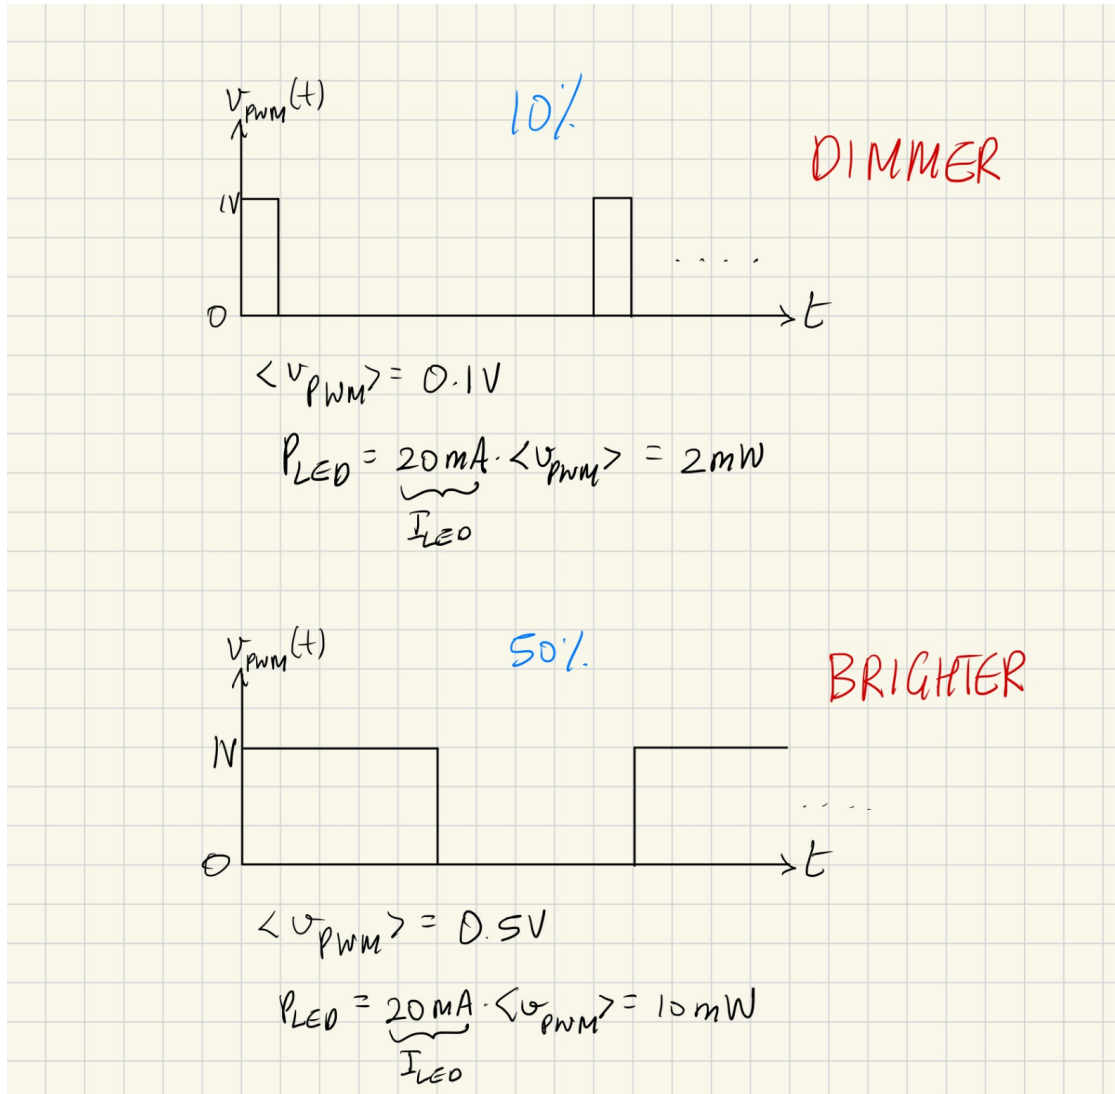 v_PWM(t)
10%
DIMMER
1V
....
0
t
<v_PWM> = 0.1V
P_LED = 20mA · <v_PWM> = 2mW
I_LED
v_PWM(t)
50%
BRIGHTER
1V
....
0
t
<v_PWM> = 0.5V
P_LED = 20mA · <v_PWM> = 10mW
I_LED